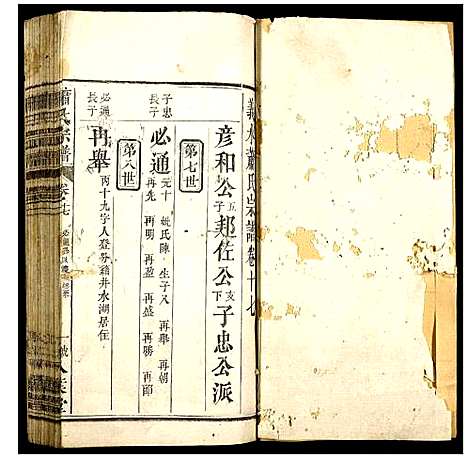 義大蕭氏宗譜卷十七
彥和公五子邦佐公支下子忠公派
第七世
子忠長子
必通
元十 姚氏陳 生子八 再舉 再朝
再先 再明 再盈 再盛 再勝 再節
第八世
必通長子
再舉
丙十九字人登芬籍井水湖居住
蕭氏宗譜
卷十七